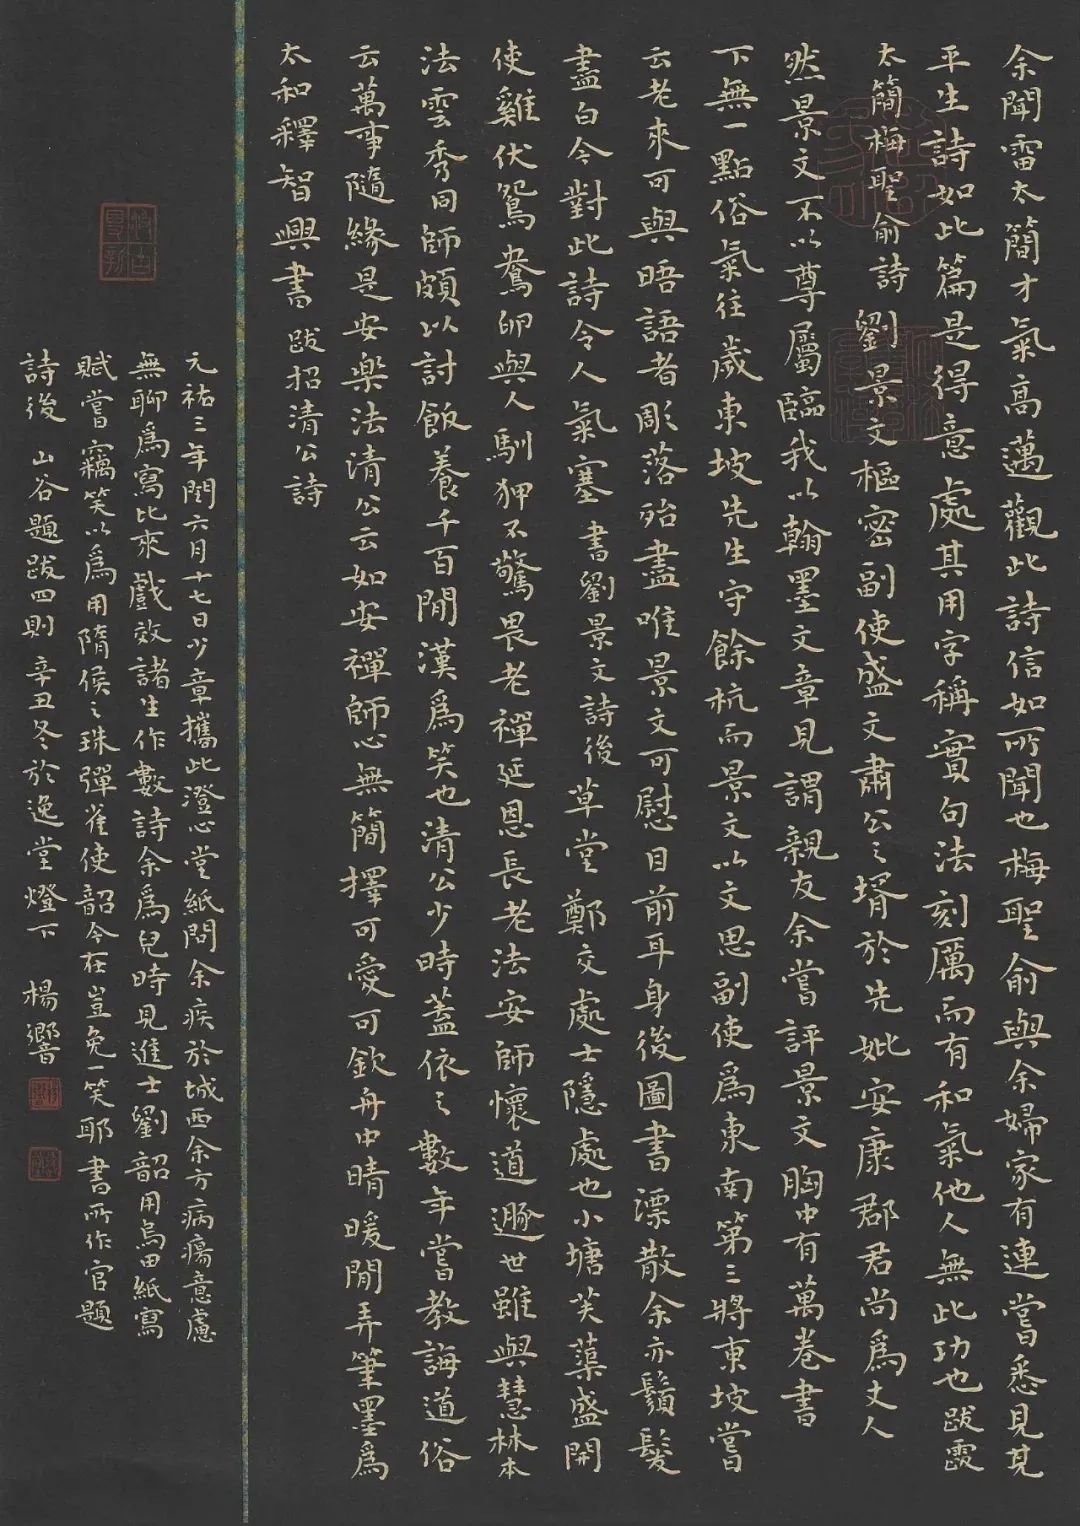 余聞雷太簡才氣高邁觀此詩信如所聞也梅聖俞與余婦家有連嘗悉見其
平生詩如此篇是得意處其用字稱實句法刻厲而有和氣他人無此功也跋雷
太簡梅聖俞詩劉景文樞密副使盛文肅公之壻於先妣安康郡君尚為丈人
然景文不以尊屬臨我以翰墨文章見謂親友余嘗評景文胸中有萬卷書
下無一點俗氣往歲東坡先生守餘杭而景文以文思副使為東南第三將東坡嘗
云老來可與晤語者彫落殆盡唯景文可慰目前耳身後圖書漂散余亦鬚髮
盡白令對此詩令人氣塞書劉景文詩後草堂鄭交處士隱處也小塘芙蕖盛開
使雞伏鴛鴦卵與人馴狎不驚畏老禪延恩長老法安師懷道遯世雖與慧林本
法雲秀同師頗以討飯養千百閒漢為笑也清公少時蓋依之數年嘗教誨道俗
云萬事隨緣是安樂法清公云如安禪師心無簡擇可愛可欽舟中晴暖閒弄筆墨為
太和釋智興書跋招清公詩
元祐三年閏六月十七日少章攜此澄心堂紙問余疾於城西余方病瘍意慮
無聊為寫比來戲效諸生作數詩余為兒時見進士劉韶用烏田紙寫
賦嘗竊笑以為用隋侯之珠彈雀使韶今在豈免一笑耶書所作官題
詩後山谷題跋四則辛丑冬於逸堂燈下楊響